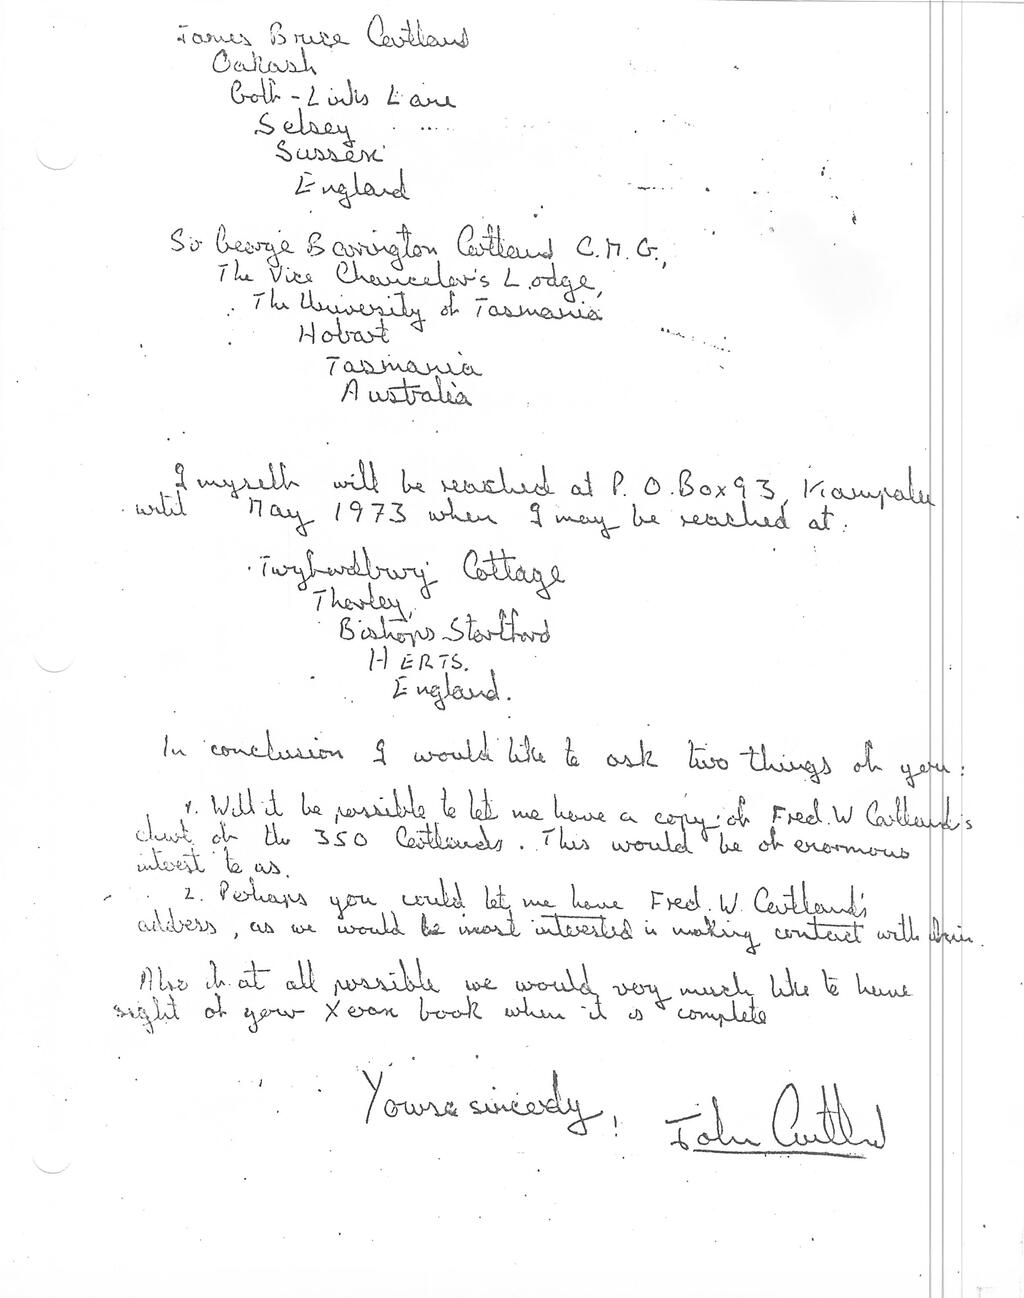 James Bruce Cartland
Oakash
Golf-Links Lane
Selsey
Sussex
England
Sir George Barrington Cartland C.M.G.,
The Vice Chancelor's Lodge,
The University of Tasmania
Hobart
Tasmania
Australia
I myself will be reached at P.O. Box 93, Kampala
until May 1973 when I may be reached at:
Twyfordbury Cottage
Thorley,
Bishops Stortford
HERTS.
England.
In conclusion I would like to ask two things of you:
1. Will it be possible to let me have a copy of Fred. W Cartland's
chart of the 350 Cartlands. This would be of enormous
interest to us.
2. Perhaps you could let me have Fred. W. Cartland's
address, as we would be most interested in making contact with him.
Also if at all possible we would very much like to have
sight of your Xerox book when it is complete
Yours sincerely,
John Cartland